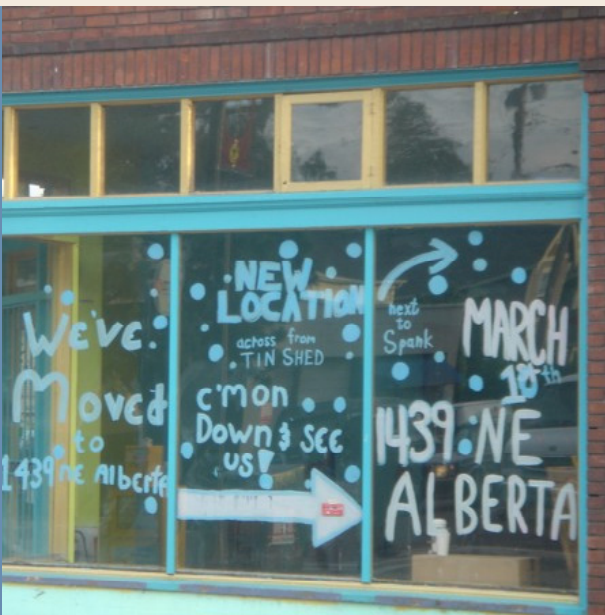 We've
Moved
to
1439 NE Alberta
NEW
LOCATION
across from
TIN SHED
c'mon
Down & SEE
US!
next
to
Spank
MARCH
1439 NE
ALBERTA